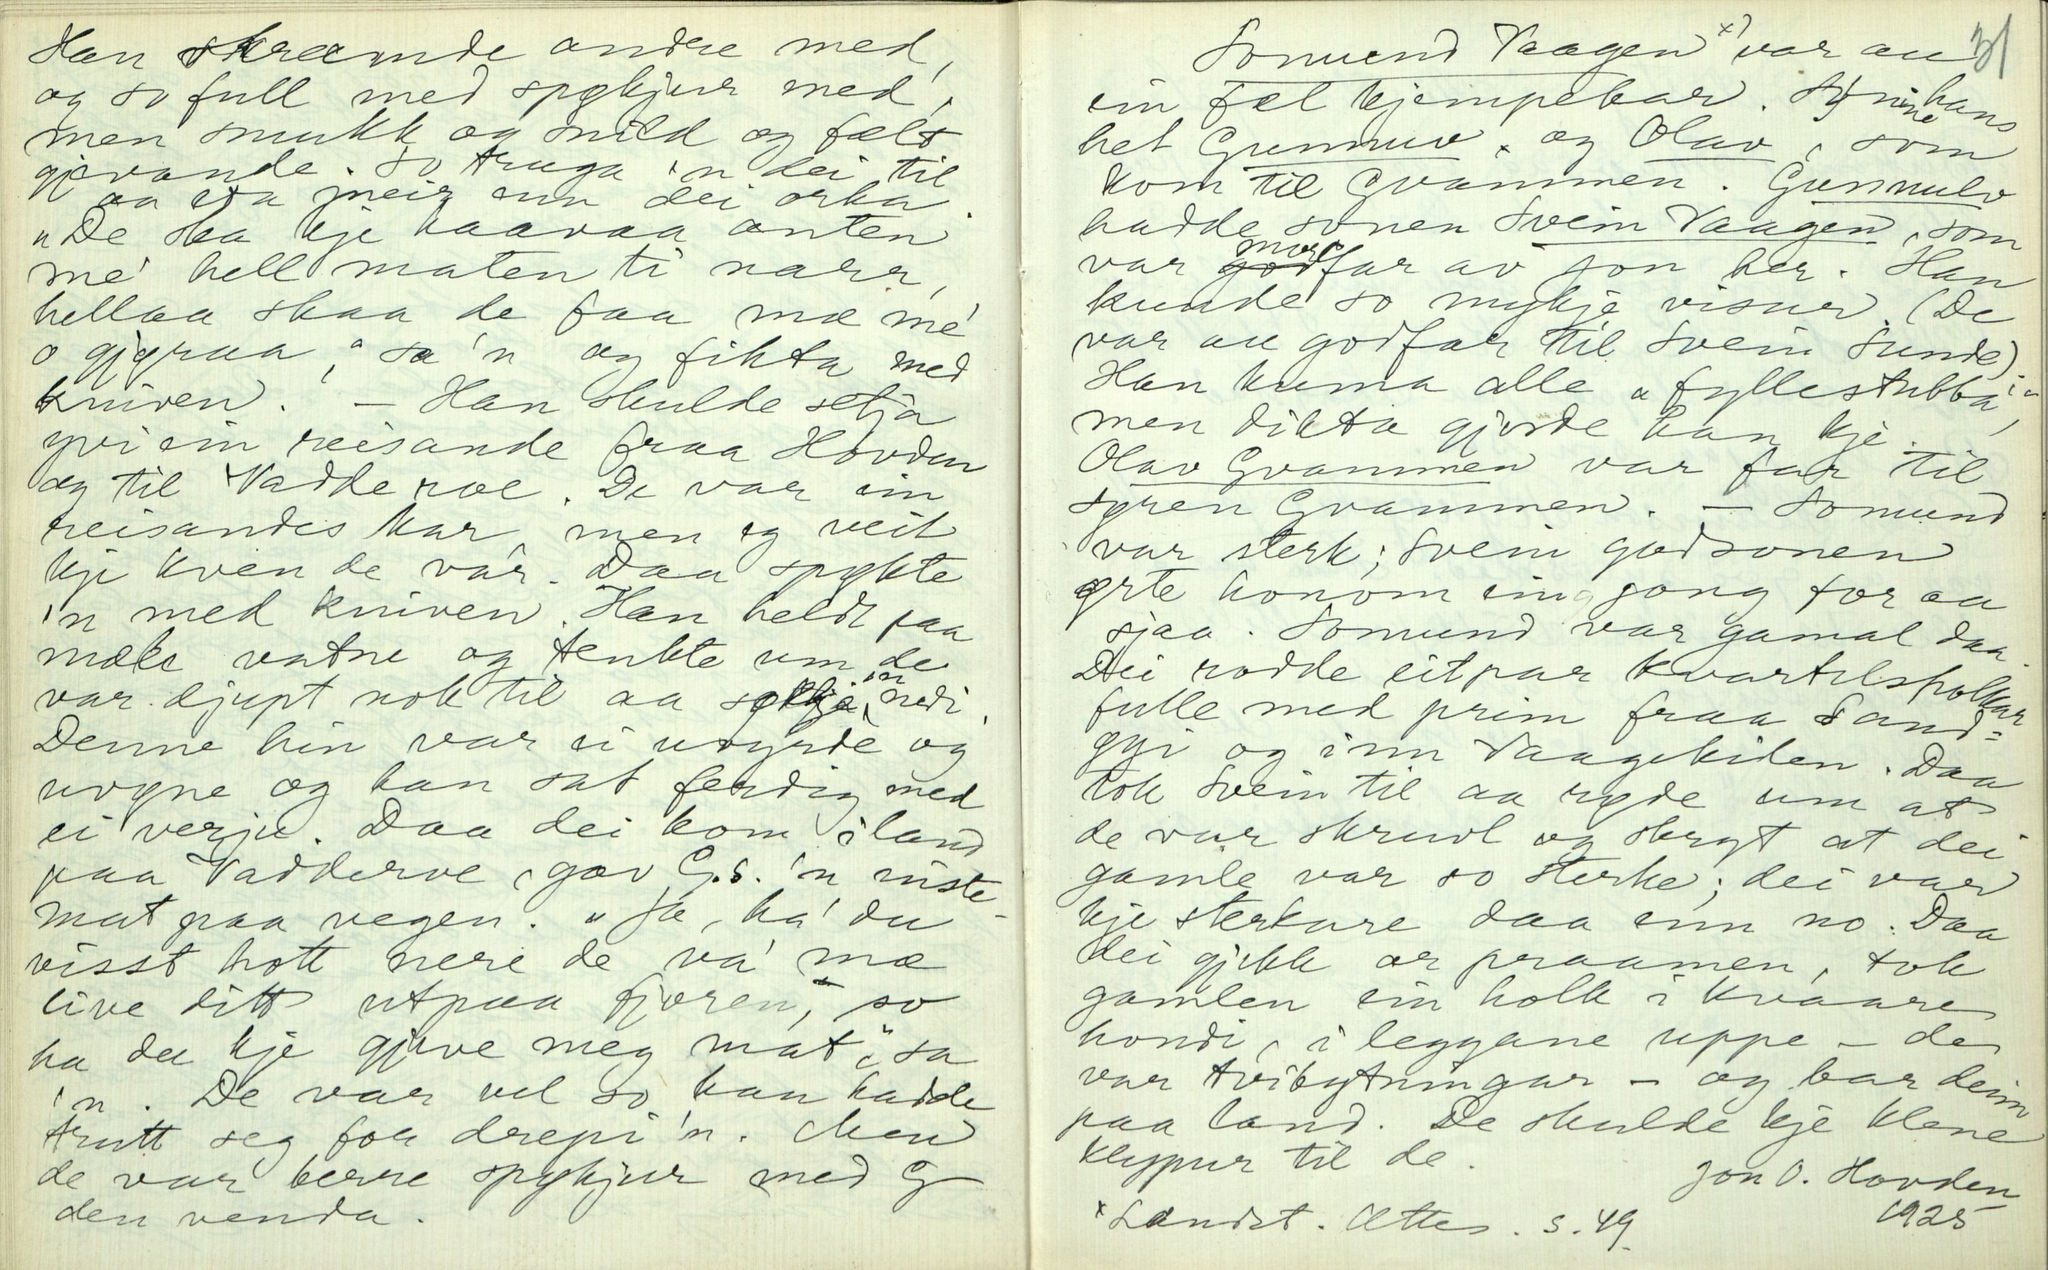 Han skræmde andre med,
og so full med spøkjur med,
men smukk og snild og fælt
gjevande. So truga 'n dei til
aa eta meir enn dei orka.
"De ska kje haavaa anten
me' hell maten ti narr,
hellaa skaa de faa mæ me'
o gjøraa," sa 'n og fikta med
kniven. — Han skulde setja
yvi ein reisande fraa Hovden
og til Vadderoe. De var ein
reisandes kar, men eg veit
kje kven de var. Daa spøkte
'n med kniven. Han heldt paa
mæle vatne og tenkte um de
var djupt nok til aa søkkje 'n nedi.
Denne hin var ei uvyrde og
uvøgne og han sat ferdig med
ei verju. Daa dei kom i land
paa Vadderoe, gav G.S. 'n niste-
mat paa vegen. "Ja, ha' du
visst hott nere de va' mæ
live ditt utpaa fjoren, so
ha du kje gjeve meg mat", sa
'n. De var vel so han hadde
trutt seg for drepi 'n. Men
de var berre spøkjur med G
den venda.
31
Somund Vaagen x) var au
ein fæl kjempekar. Synine hans
het Gunnuv, og Olav, som
kom til Gvammen. Gunnulv
hadde sonen Svein Vaagen, som
var godfar morfar av Jon her. Han
kunde so mykje visur. (De
var au godfar til Svein Sunde)
Han kunna alle "fyllestubba",
men dikta gjorde han kje.
Olav Gvammen var far til
Syren Gvammen. — Somund
var sterk; Svein godsonen
ørte honom ein gong for aa
sjaa. Somund var gamal daa.
Dei rodde eitpar kvartilsholkar
fulle med prim fraa Sand-
øyi og inn Vaagekilen. Daa
tok Svein til aa røde um at
de var skruvl og skrøt at dei
gamle var so sterke; dei var
kje sterkare daa enn no. Daa
dei gjekk or praamen, tok
gamlen ein holk i kvaare
hondi, i leggane uppe — de
var tvibytningar — og bar deim
paa land. De skulde kje klene
klypur til de.
Jon O. Hovden
1925
x Landst. Ættes. s. 49.